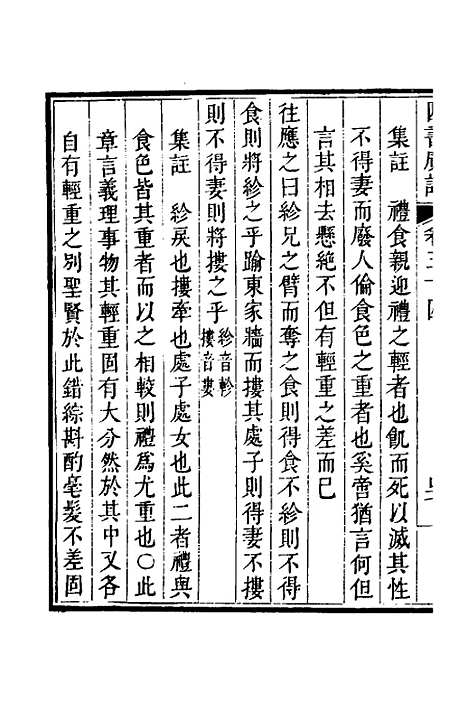 集註　禮食親迎禮之輕者也飢而死以滅其性
不得妻而廢人倫食色之重者也奚啻猶言何但
言其相去懸絶不但有輕重之差而已
往應之曰紾兄之臂而奪之食則得食不紾則不得
食則將紾之乎踰東家牆而摟其處子則得妻不摟
則不得妻則將摟之乎紾音軫摟音婁
集註　紾戾也摟牽也處子處女也此二者禮與
食色皆其重者而以之相較則禮爲尤重也〇此
章言義理事物其輕重固有大分然於其中又各
自有輕重之別聖賢於此錯綜斟酌毫髮不差固